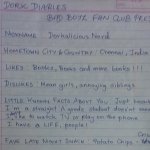 DORK DIARIES
BAD BOYZ FAN CLUB PRE
NICKNAME Dorkalicious Nerd
HOMETOWN CITY & COUNTRY Chennai, India
LIKES: Books, Books and more books!!!
DISLIKES Mean girls, annoying siblings
LITTLE KNOWN FACTS ABOUT You Just
I'm a straight A grade student don't
like to watch TV or play on the phone
I have a LIFE, people!
FAVE LATE NIGHT SNACK: Potato Chips